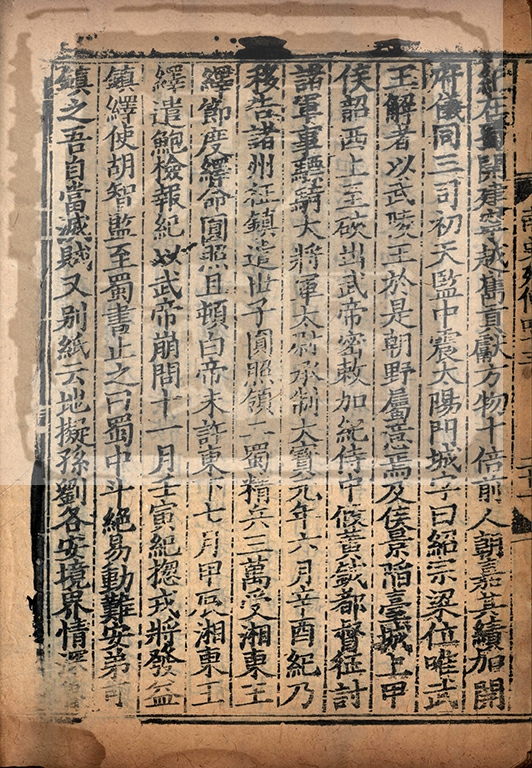 紀在蜀開建寧越嶲貢獻方物十倍前人朝嘉其績加開
府儀同三司初天監中震太陽門城字曰紹宗梁位唯武
王解者以武陵王於是朝野屬意焉及侯景陷臺城上甲
侯韶西上至硤出武帝密敕加紀侍中假黃鉞都督征討
諸軍事驃騎大將軍太尉承制大寶元年六月辛酉紀乃
移告諸州征鎮遣世子圓照領二蜀精兵三萬受湘東王
繹節度繹命圓照且頓白帝未許東下七月甲辰湘東王
繹遣鮑檢報紀以武帝崩問十一月壬寅紀摠戎將發益
鎮繹使胡智監至蜀書止之曰蜀中斗絕易動難安弟可
鎮之吾自當滅賊又別紙云地擬孫劉各安境界情深